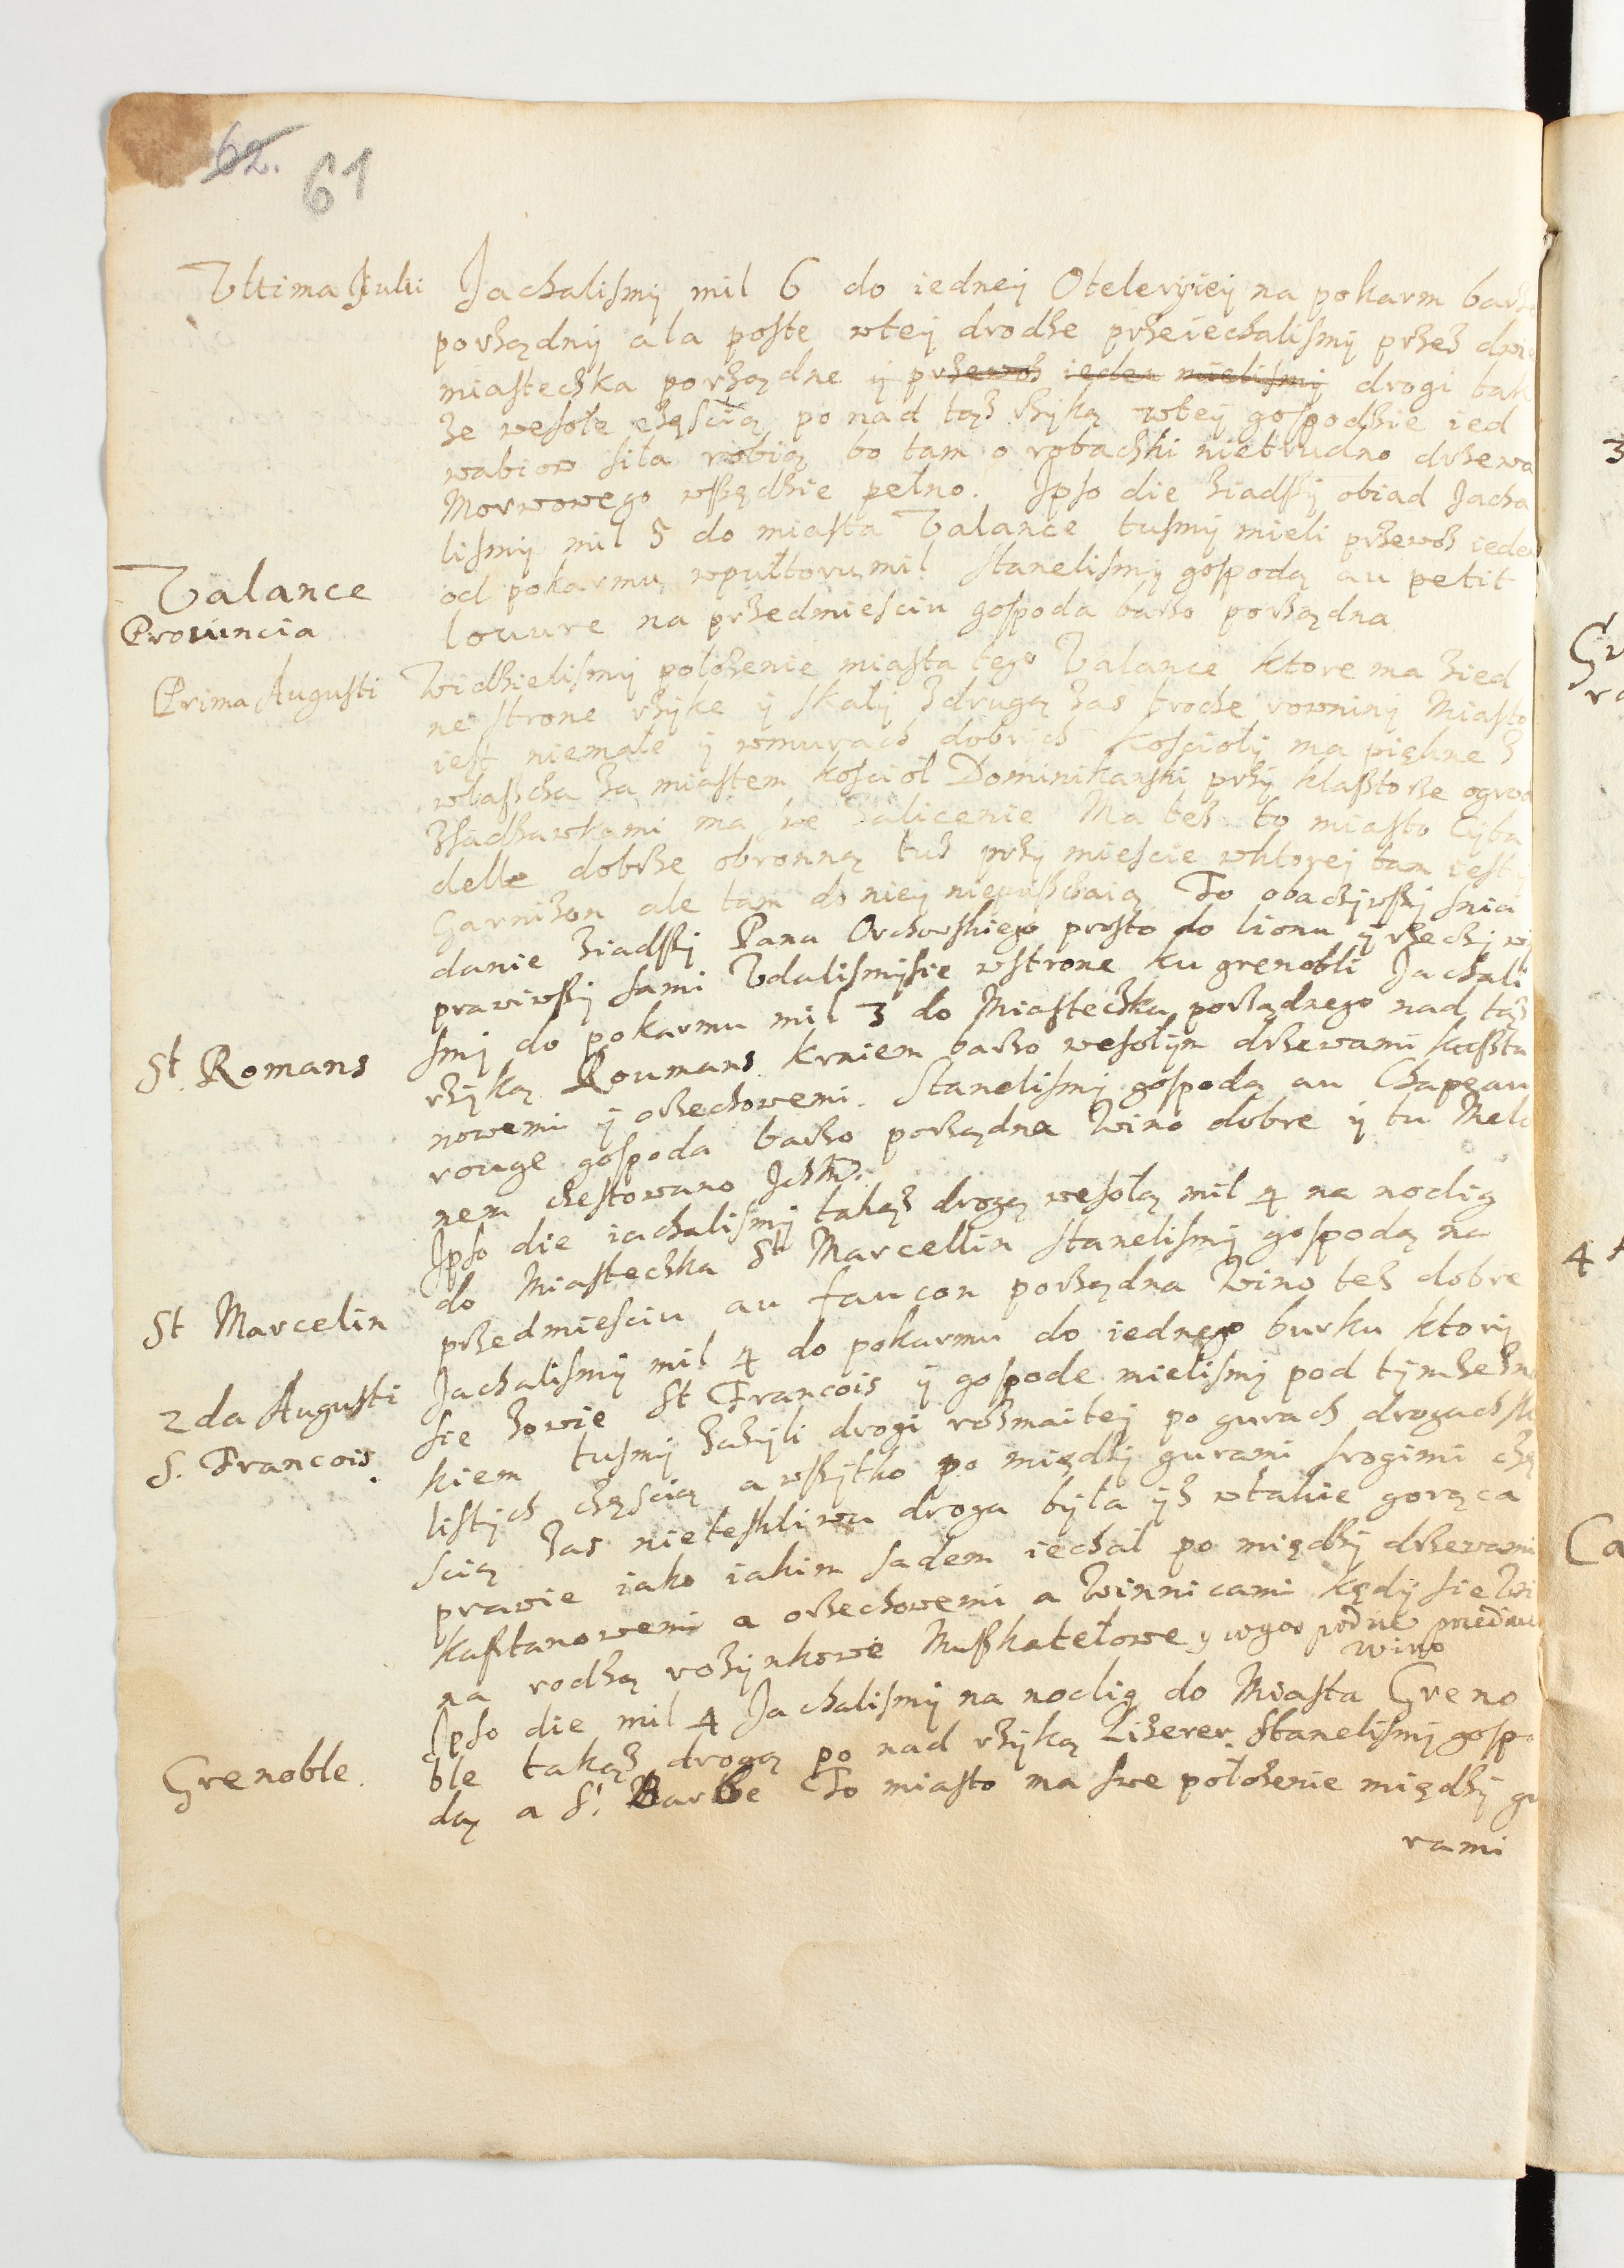 62. 61
Ultima Julii Jachalismÿ mil 6 do iedneÿ Otelerÿieÿ na pokarm barzo
porządnÿ a la poste wteÿ drodze przeiechalismÿ przez dwie
miasteczka porządne ÿ przewoz ieden mielismÿ drogi tak
ze wesołe częscią ponad tąz rzÿką wteÿ gospodzie ied
wabiow siła robią bo tam o robaczki nietrudno drzewa
Morwowego wszędzie pełno. Ipso die ziadszÿ obiad Jacha
lismÿ mil 5 do miasta Valance tusmÿ mieli przewoz ieden
Valance od pokarmu wpułtoru mil stanelismÿ gospodą au petit
Prouincia louure na przedmiesciu gospoda barzo porządna
Prima Augusti Widzielismÿ położenie miasta tego Valance ktore ma zied
ne strone rzÿke ÿ skałÿ zdrugą zas troche rowninÿ Miasto
iest niemałe ÿ wmurach dobrÿch koscioły ma piękne z
własscza za miastem kosciół Dominikanski przÿ klasztorze ogrod
zsadzawkami ma swe zalicenie Ma tez to miasto Cÿta
delle dobrze obronną tuz przÿ miescie wktoreÿ tam iest ÿ
Garnizon ale tam do nieÿ niepuszczaią To obaczÿwszÿ snia
danie ziadszÿ Pana Orchowskiego prosto do lionu ÿ rzeczÿ wÿ
prawiwszÿ sami Udalismÿsie wstrone ku grenobli Jachali
smÿ do pokarmu mil 3 do Miasteczka porządnego nad tąz
St. Romans rzÿką Roumans krniem barzo wesołÿm drzewami kaszta
nowemi ÿ orzechowemi. Stanelismÿ gospodą au Chapeau
rouge gospoda barzo porządna Wino dobre ÿ tu Melo
nem czestowano
Ipso die iachalismÿ takąz drogą wesołą mil 4 na noclig
do Miasteczka St Marcellin stanelismÿ gospodą na
St Marcelin przedmiesciu au faucon porządna Wino tez dobre
2da Augusti Jachalismÿ mil 4 do pokarmu do iednego burku ktorÿ
S. Francois. sie zowie St Francois ÿ gospode mielismÿ pod tÿmzezna
kiem tusmÿ zazÿli drogi rozmaiteÿ po gurach drogach ska
listÿch częscią a wszÿtko po międzÿ gurami srogimi czę
scią zas nieteskliwa droga bÿła ÿz wtakie gorąca
prawie iako iakim sadem iechał po międzÿ drzewami
kasztanowemi a orzechowemi a Winnicami kędÿ sie Wi
na rodzą rozÿnkowe Muszkatełowe y
wino
Ipso die mil 4 Jachalismÿ na noclig do Miasta Greno
Grenoble. ble takąz drogą po nad rzÿką Lizerer. Stanelismÿ gospo
dą a St. Barbe To miasto ma swe położenie międzÿ gu
rami